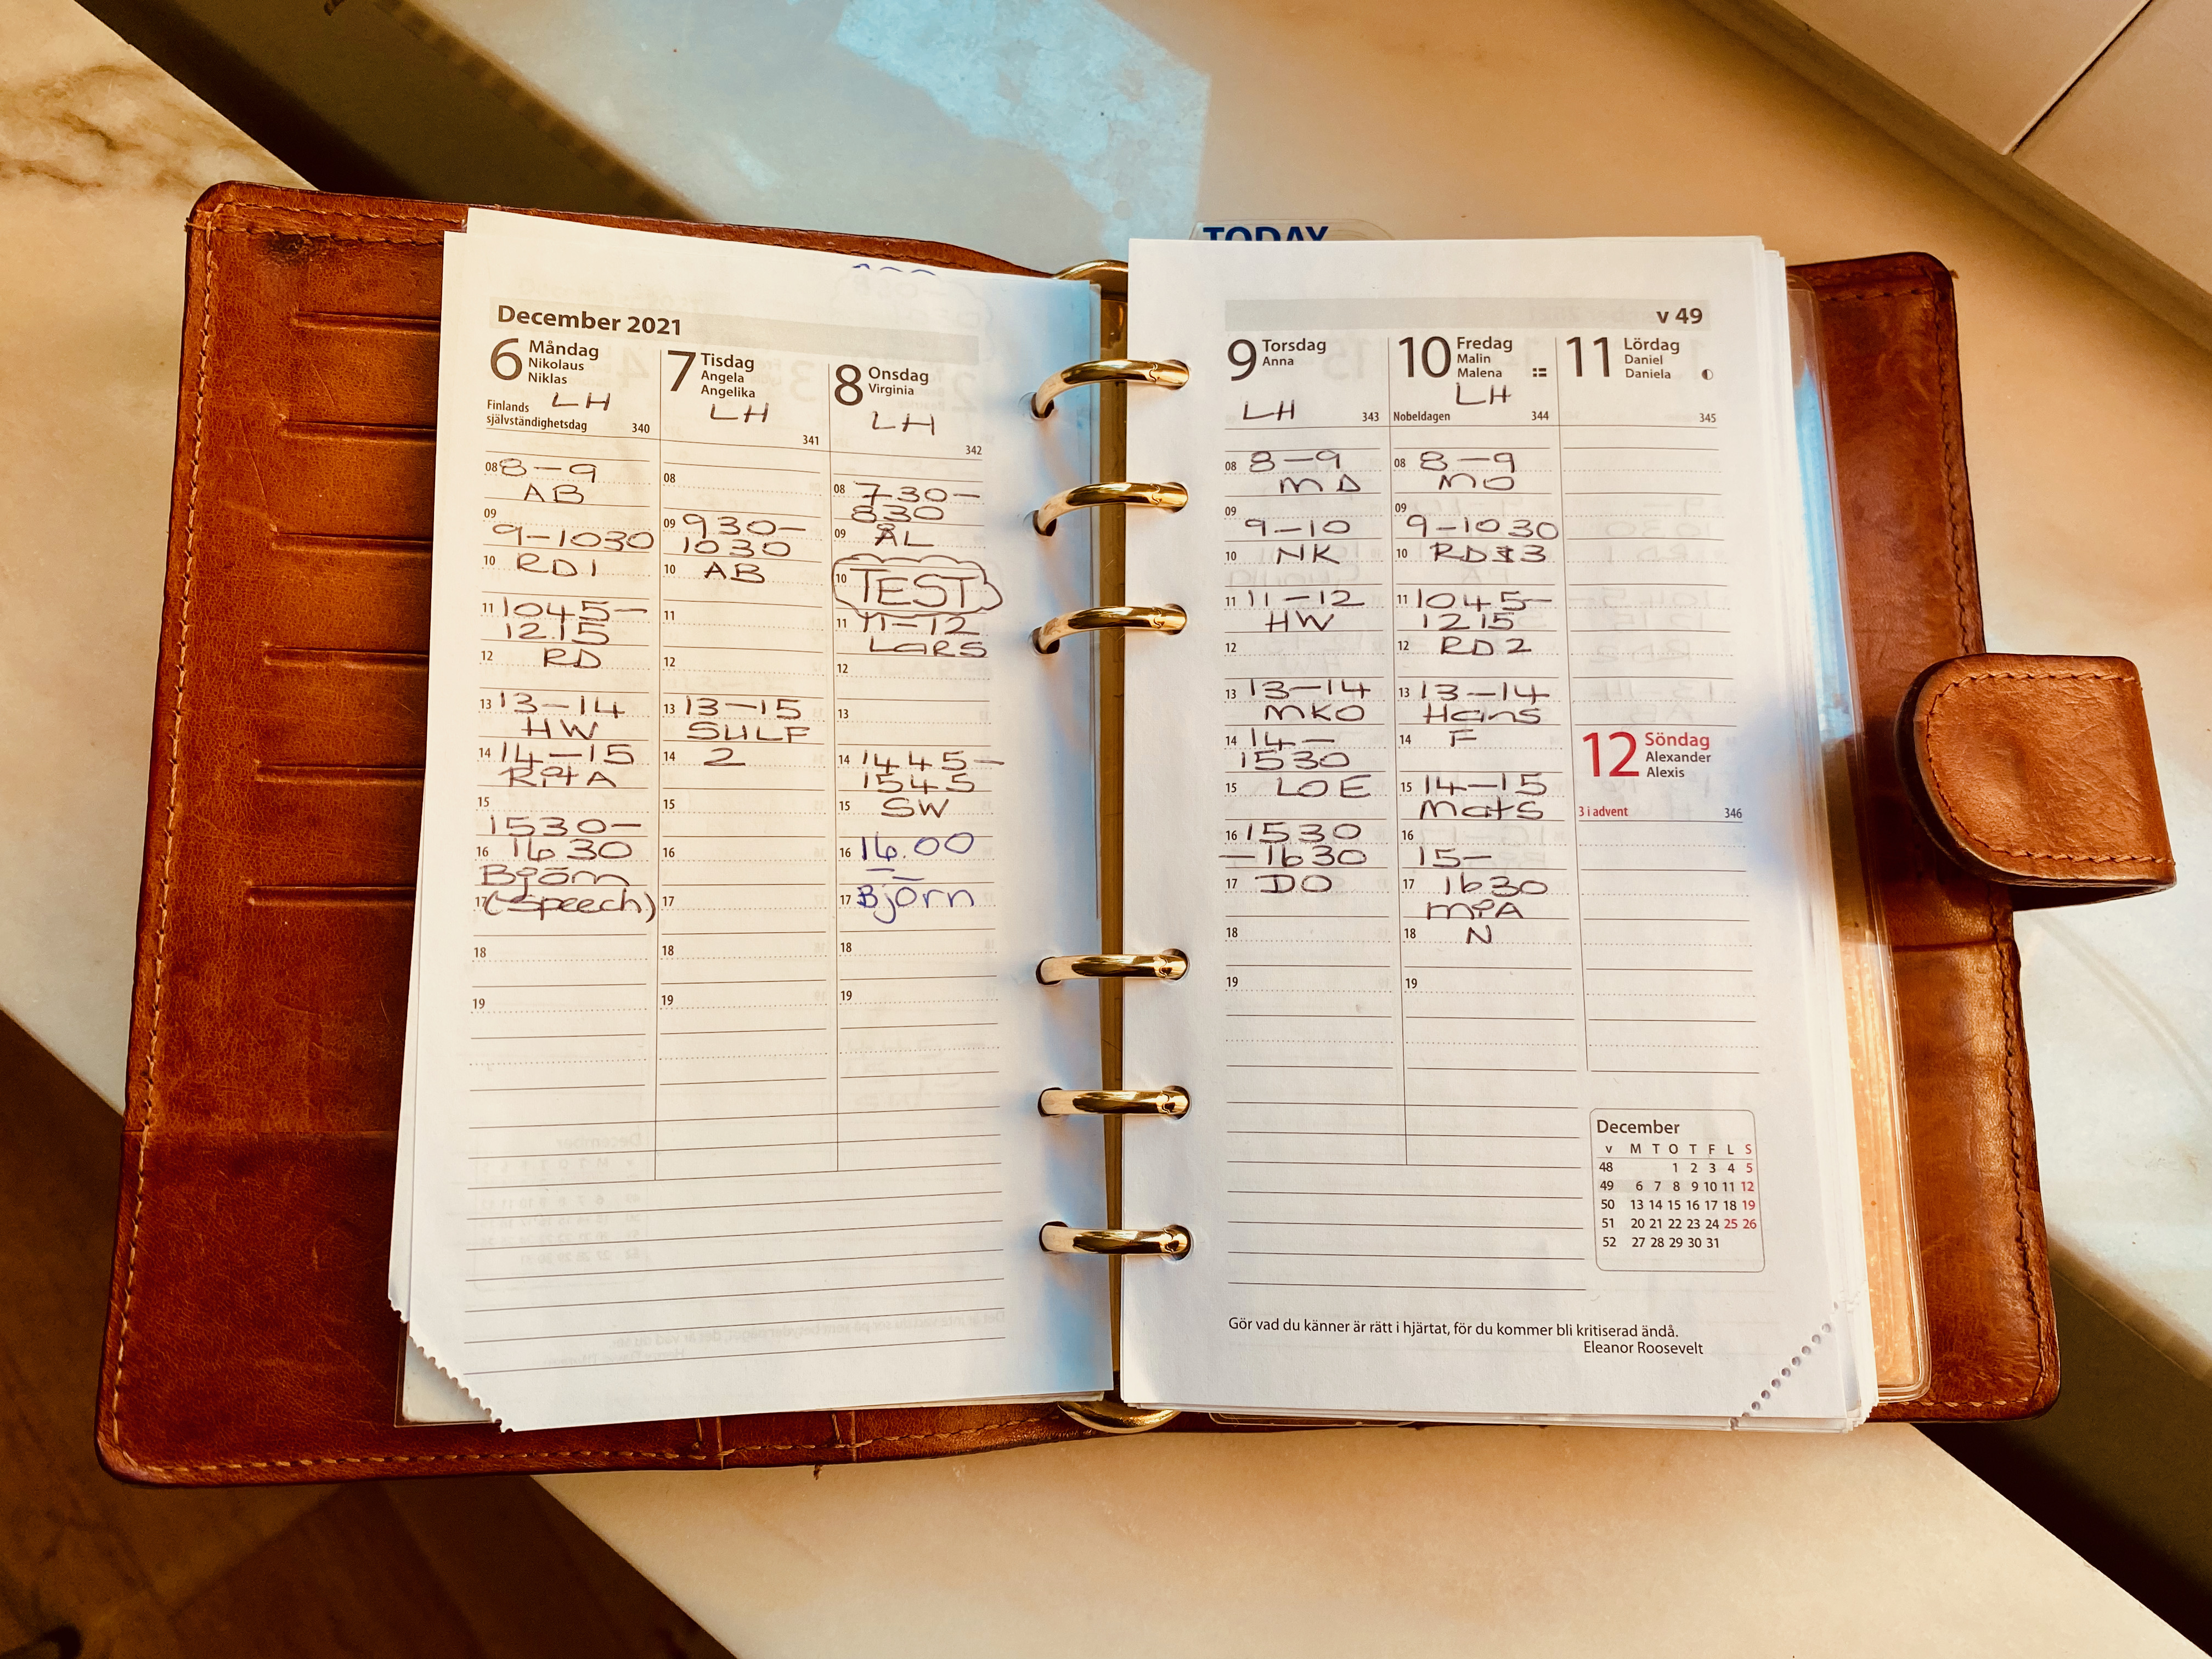 TODAY
December 2021
6 Måndag
Nikolaus
Niklas
LH
Finlands
självständighetsdag 340
08 8-9
AB
09
9-1030
10 RD1
11 1045-
1215
12 RD
13 13-14
HW
14 14-15
15
1530-
16 1630
Björn
17 (speech)
18
19
7 Tisdag
Angela
Angelika
LH
341
08
09 930-
1030
10 AB
11
12
13 13-15
SULF
14 2
15
16
17
18
19
8 Onsdag
Virginia
LH
342
08 730-
830
09 ÅL
10 TEST
11 11-12
LARS
12
13
14 1445-
1545
15 SW
16 16.00
17 Björn
18
19
v 49
9 Torsdag
Anna
LH 343
08 8-9
MD
09
9-10
10 NK
11 11-12
HW
12
13 13-14
MKO
14 14-
1530
15 LOE
16 1530
-1630
17 DO
18
19
10 Fredag
Malin
Malena
LH
Nobeldagen 344
08 8-9
MO
09
9-1030
10 RD 3
11 1045-
1215
12 RD2
13 13-14
Hans
14 F
15 14-15
Mats
16
15-
17 1630
MPA
18 N
19
11 Lördag
Daniel
Daniela
345
12 Söndag
Alexander
Alexis
3 i advent 346
December
v M T O T F L S
48 1 2 3 4 5
49 6 7 8 9 10 11 12
50 13 14 15 16 17 18 19
51 20 21 22 23 24 25 26
52 27 28 29 30 31
Gör vad du känner är rätt i hjärtat, för du kommer bli kritiserad ändå.
Eleanor Roosevelt